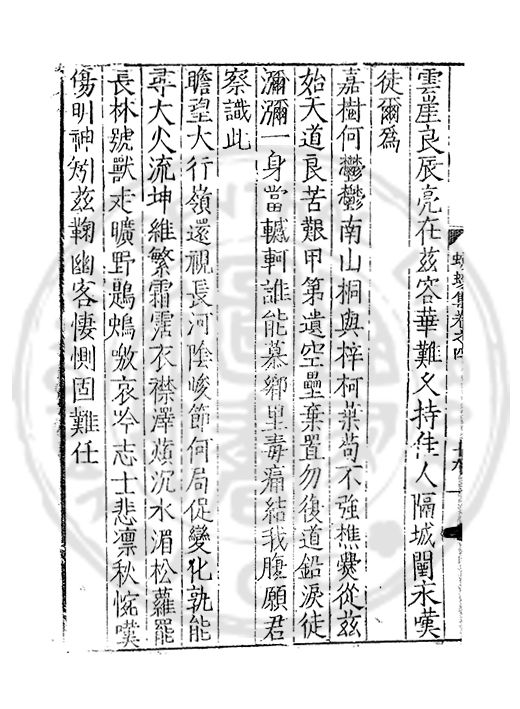 雲崖良辰亮在茲容華難久持佳人隔城闉永嘆
徒爾為
嘉樹何鬱鬱南山桐與梓柯葉茍不強樵爨從茲
始天道良苦艱甲第遺空壘棄置勿復道鉛淚徒
瀰瀰一身當轗軻誰能慕鄉里毒痛結我腹願君
察識此
瞻望大行嶺還視長河陰峻節何局促變化孰能
尋大火流坤維繁霜霑衣襟澤蘋沉水湄松蘿罷
長林號獸走曠野鶗鴂噭哀吟志士悲凛秋惋嘆
傷明神矧茲鞠幽客悽惻固難任
集卷之四
十九